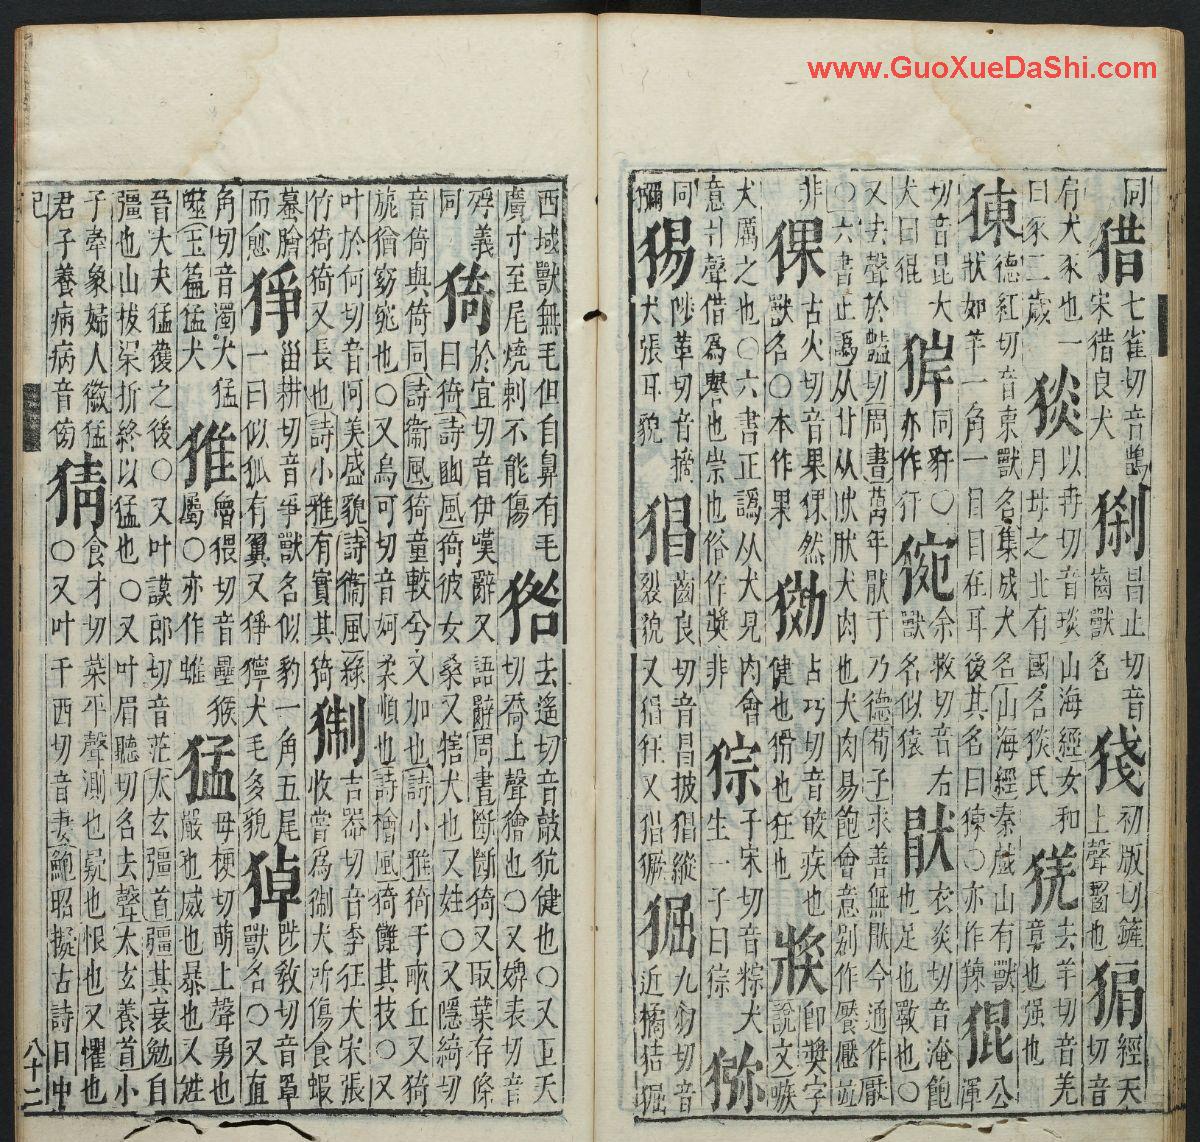 同猎七雀切音鵲宋猎良犬 昌止切音齒獸名 初版切鏟上聲齧也 經天切音
肩犬豕也一曰豕三歲猤以冉切音琰山海經女和月母之北有國名㷋氏 去羊切音羌 也强也
㹶德紅切音東獸名山海經泰戲山有獸狀如羊一角一目目在耳後其名曰㹶〇亦作䍶猑公渾
切音昆大犬曰猑 同犴〇亦作犴 余救切音右獸名似猿猒衣炎切音淹飽也足也斁也〇
又去聲於豔切周書萬年猒于乃德荀子求善無猒今通作厭〇六書正譌从甘从肰肰犬肉也犬肉易飽會意别作饜
非猓古火切音果猓然獸名〇本作果 健也狂也 即獎字說文嗾
犬厲之也〇六書正譌从犬見肉會意爿聲借爲譽也崇也俗作獎非猔子宋切音粽犬生一子曰猔猕
同獼猲陟革切音摘犬張耳貌猖齒良切音昌披猖縱裂貌又猖狂又猖獗猸九勿切音近橘狤猸
西域獸無毛但自鼻有毛廣寸至尾燒刺不能傷 去遙切音敲犺健也〇又巨夭切喬上聲獪也〇又婢表切音
殍義同猗於宜切音伊嘆辭又語辭周書斷斷猗又取葉存條曰猗詩豳風猗彼女桑又犗犬也又姓〇又隱綺切
音倚與倚同詩衞風猗重較兮又加也詩小雅猗于畝丘又猗旎猶窈窕也〇又烏可切音妸柔順也詩檜風猗儺其枝〇又
叶於何切音阿美盛貌詩衞風綠竹猗猗又長也詩小雅有實其猗猘吉器切音季狂犬宋張收嘗爲猘犬所傷食蝦
蟇膾而愈猙甾耕切音爭獸名似豹一角五尾一曰似狐有翼又猙獰犬毛多貌 陟教切音罩獸名〇又直
角切音濁犬猛 玉篇猛犬 魯猥切音壘猴屬〇亦作蜼猛毋梗切萌上聲勇也嚴也威也暴也又姓
晉大夫猛獲之後〇又叶謨郎切音茫太玄彊首彊其衰勉自彊也山拔梁折終以猛也〇又叶眉聽切名去聲太玄養首小
子牽象婦人徽猛君子養病病音傍猜倉才切菜平聲測也疑也恨也又懼也〇又叶千西切音妻鮑昭擬古詩日中
八十二
www.GuoXueDaShi.com